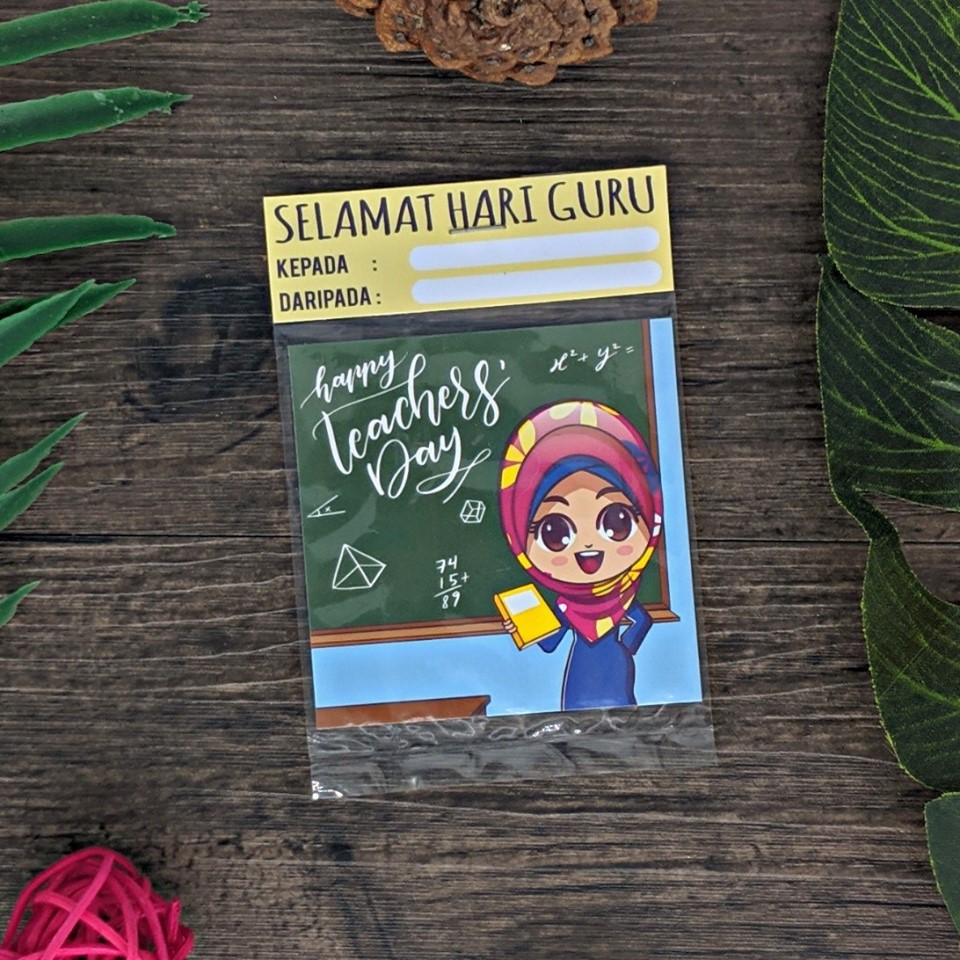 SELAMAT HARI GURU
KEPADA :
DARIPADA :
happy
Teachers'
Day
x² + y² =
x
74
15+
89